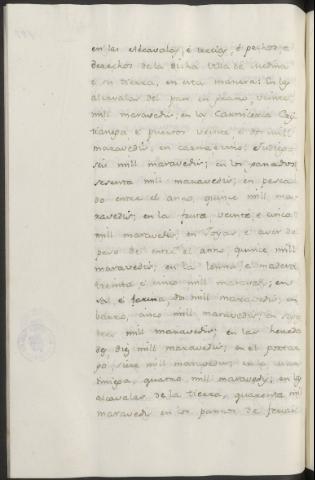 en las alcavalas, é tercias, é pechos, e
derechos de la dicha Villa de Medina
é su tierra, en esta manera: En las
alcavalas del pan en grano, veinte
mill maravedis; en la Carniceria
é puercos veinte, é dos mill
maravedis; en carne é vino
seis mill maravedis; en los ganados
sesenta mill maravedis; en pesca
do entre el anno, quince mill ma
ravedis; en la fruta veinte, é cinco
mill maravedis; en joyas é aver de
peso del entre el anno, quince mill
maravedis; en la lenna, é madera
treinta é cinco mill maravedis; en
sal, é farina, dos mill maravedis; en
barro, cinco mill maravedis; en
tres mill maravedis; en las hereda
des, diez mill maravedis; en el
siete mill maravedis; en la
quatro mill maravedis; en las
alcavalas de la tierra, quarenta mill
maravedis en los pannos de